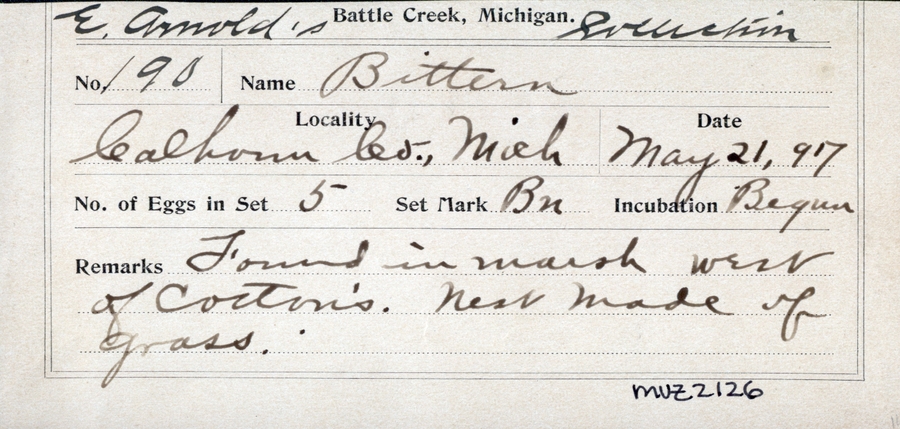 E. Arnold's Battle Creek, Michigan. Collection
No. 190 Name Bittern
Locality Date
Calhoun Co., Mich May 21, 917
No. of Eggs in Set 5 Set Mark Bn Incubation Begun
Remarks Found in marsh west
of Cotton's. Nest made of
grass.
MVZ2126